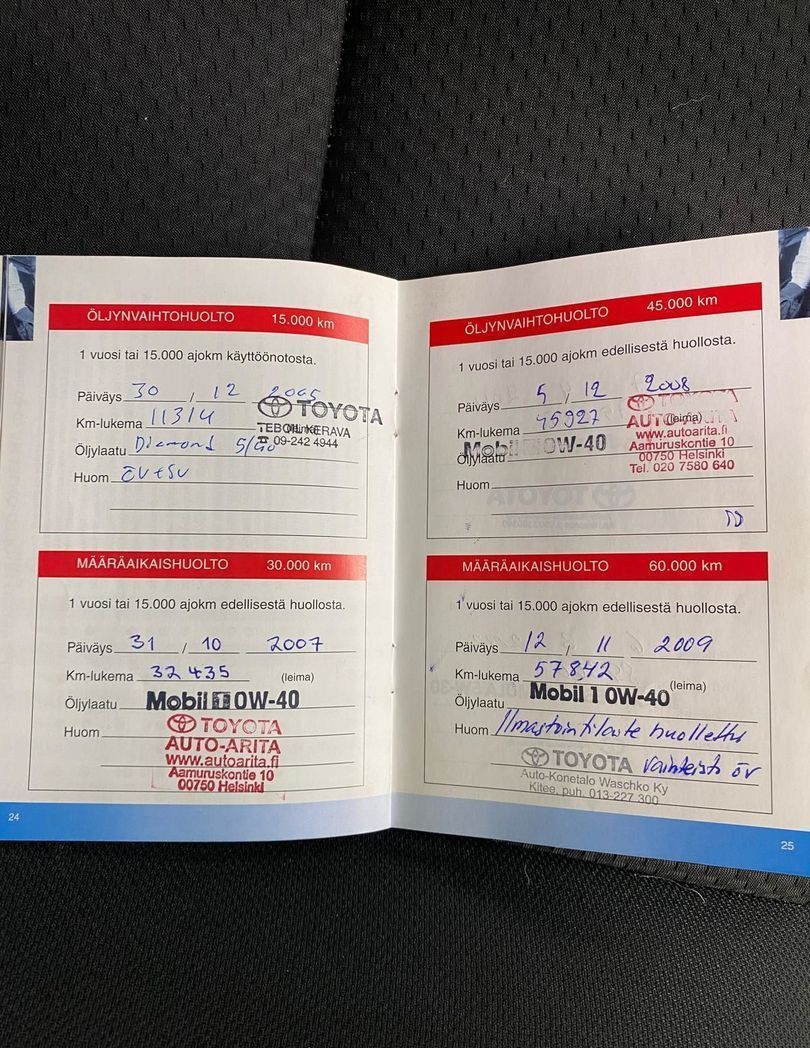 ÖLJYNVAIHTOHUOLTO 15.000 km
1 vuosi tai 15.000 ajokm käyttöönotosta.
Päiväys 30 / 12 2005
Km-lukema 11314
TOYOTA
TEBOIL KERAVA
☎ 09-242 4944
Öljylaatu Diamond 5/40
Huom ÖV+SV
MÄÄRÄAIKAISHUOLTO 30.000 km
1 vuosi tai 15.000 ajokm edellisestä huollosta.
Päiväys 31 / 10 2007
Km-lukema 32435 (leima)
Öljylaatu Mobil 1 0W-40
Huom
TOYOTA
AUTO-ARITA
www.autoarita.fi
Aamuruskontie 10
00750 Helsinki
24
ÖLJYNVAIHTOHUOLTO 45.000 km
1 vuosi tai 15.000 ajokm edellisestä huollosta.
Päiväys 5 / 12 2008
Km-lukema 45927 (leima)
Öljylaatu Mobil 0W-40
AUTO
www.autoarita.fi
Aamuruskontie 10
00750 Helsinki
Tel. 020 7580 640
Huom
MÄÄRÄAIKAISHUOLTO 60.000 km
1 vuosi tai 15.000 ajokm edellisestä huollosta.
Päiväys 12 / 11 2009
Km-lukema 57842 (leima)
Öljylaatu Mobil 1 0W-40
Huom Ilmastointilaite huollettu
TOYOTA Vaihteisto öv
Auto-Konetalo Waschko Ky
Kitee, puh. 013-227 300
25